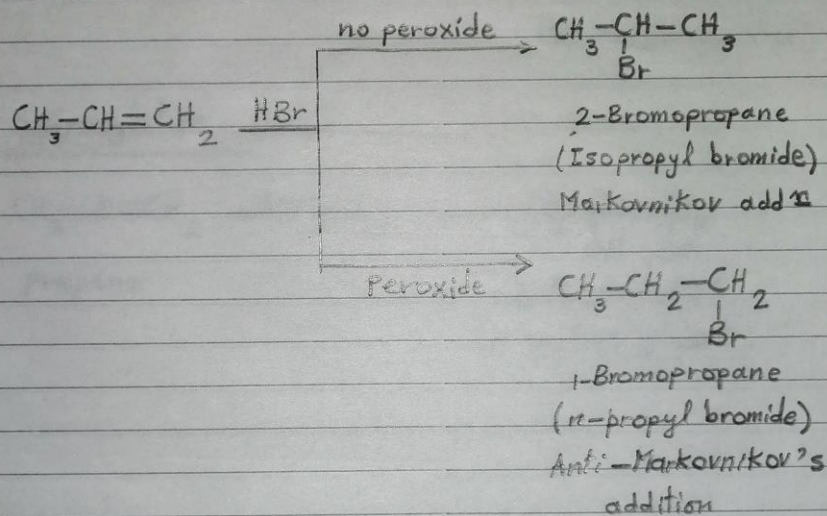 no peroxide
CH3-CH-CH3
Br
CH3-CH=CH2 HBr
2-Bromopropane
(Isopropyl bromide)
Markovnikov addn
Peroxide
CH3-CH2-CH2
Br
1-Bromopropane
(n-propyl bromide)
Anti-Markovnikov's
addition